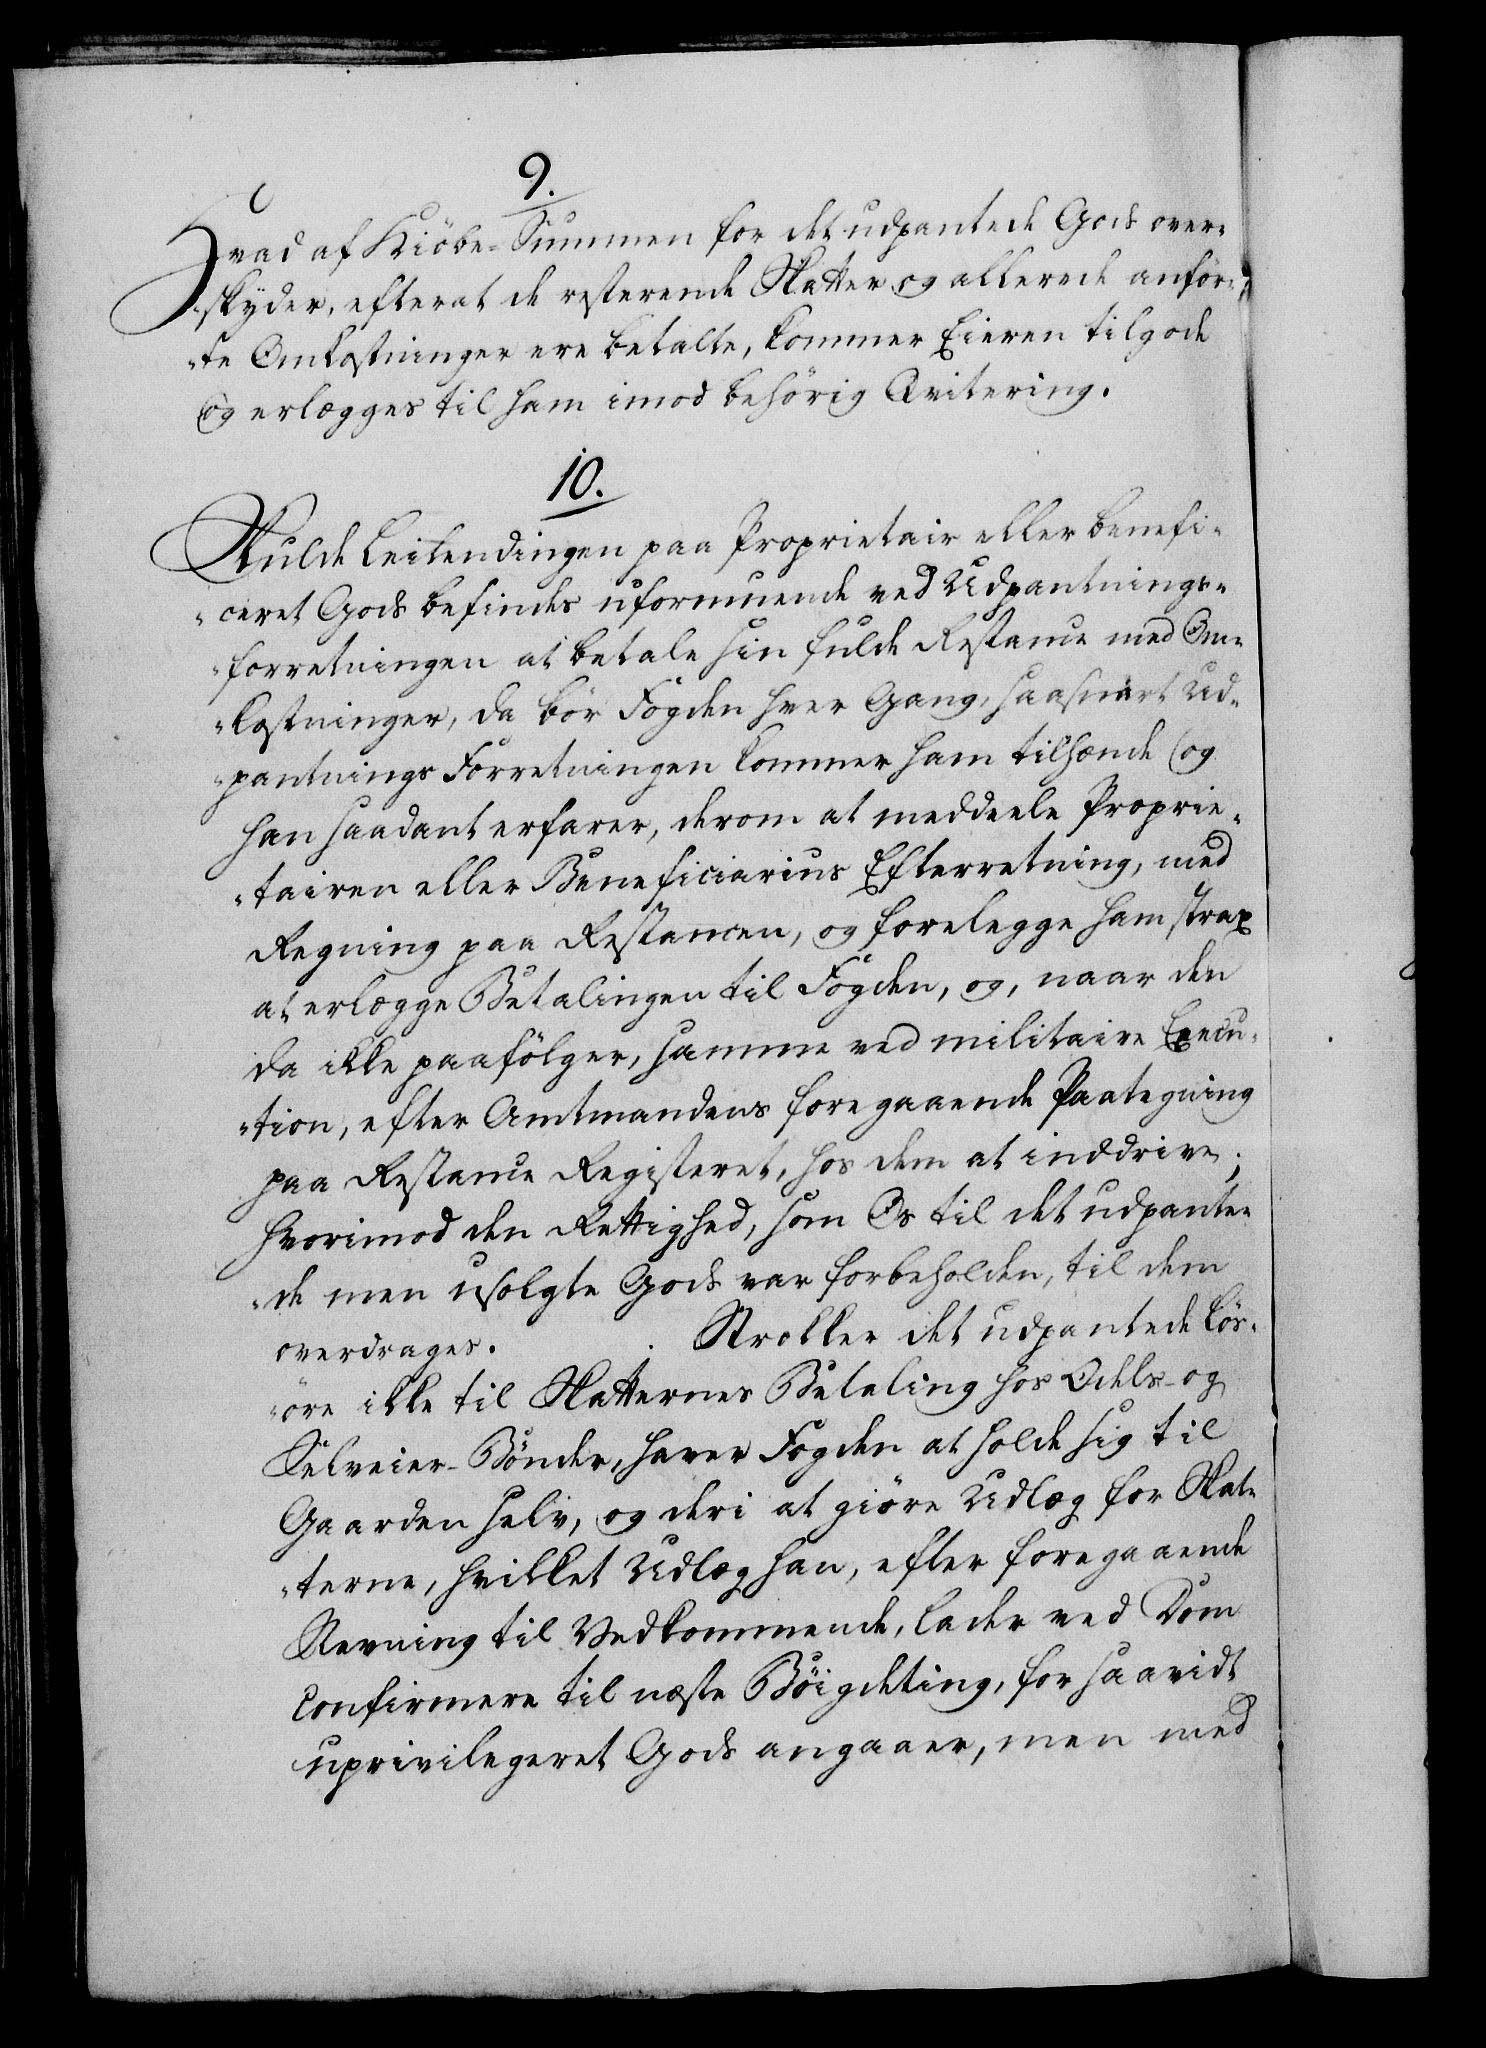 9.
Hvad af Kiöbe-Summen for det udpantede Gods over-
skyder, efterat de resterende Skatter og allerede anför-
te Omkostninger ere betalte, kommer Eieren tilgode
og erlægges til ham imod behörig Qvitering.
10.
Skulde Leilendingen paa Proprietair eller benefi-
ceret Gods befindes uformuende ved Udpantnings-
forretningen at betale sin fulde Restance med Om-
kostninger, da bör Fogden hver Gang, saasnart Ud-
pantnings Forretningen kommer ham tilhænde og
han saadant erfarer, derom at meddeele Proprie-
tairen eller Beneficiarius Efterretning, med
Regning paa Restancen, og forelegge ham strax
at erlægge Betalingen til Fogden, og, naar den
da ikke paafölger, samme ved militaire Execu-
tion, efter Amtmandens foregaaende Paategning
paa Restance Registeret, hos dem at inddrive;
hvorimod den Rettighed, som Os til det udpante-
de men usolgte Gods var forbeholden, til dem
overdrages. Strekker det udpantede Lös-
öre ikke til Skatternes Betaling hos Odels- og
Selveier-Bönder, haver Fogden at holde sig til
Gaarden selv, og deri at giöre Udlæg for Skat-
terne, hvilket Udlæg han, efter foregaaende
Stevning til Vedkommende, lader ved Dom
confirmere til næste Böigdeting, for saavidt
uprivilegeret Gods angaaer, men med